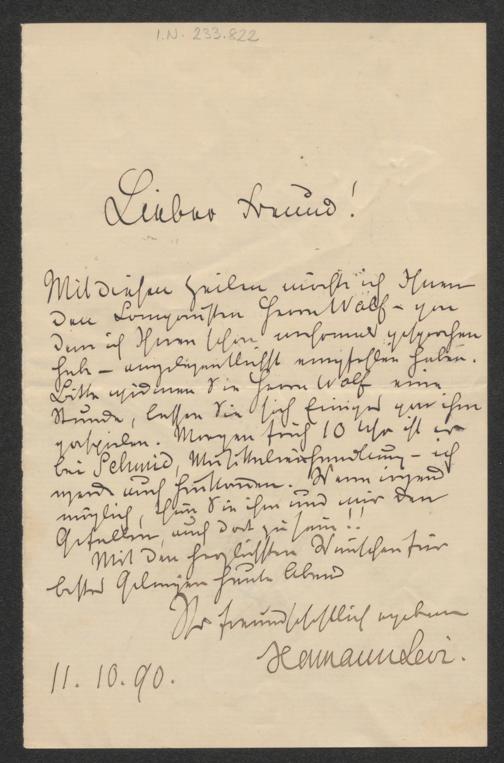 I.N. 233.822
Lieber Freund!
Mit diesen Zeilen möchte ich Ihnen
den Componisten Herrn Wolf – von
dem ich Ihnen schon mehrmals gesprochen
habe – angelegentlichst empfohlen haben.
Bitte widmen Sie Herrn Wolf eine
Stunde, lassen Sie sich Einiges von ihm
vorspielen. Morgen früh 10 Uhr ist er
bei Schmid, Musikalienhandlung – ich
werde auch hinkommen. Wenn irgend
möglich, thun Sie ihm und mir den
Gefallen, auch dort zu sein!!
Mit den herzlichsten Wünschen für
bestes Gelingen heute Abend
Ihr freundschaftlich ergebener
Hermann Levi.
11. 10. 90.